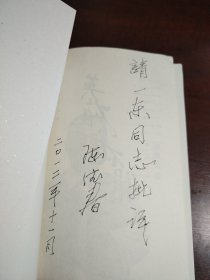 請一东同志批评
陆成春
二〇一二年十一月